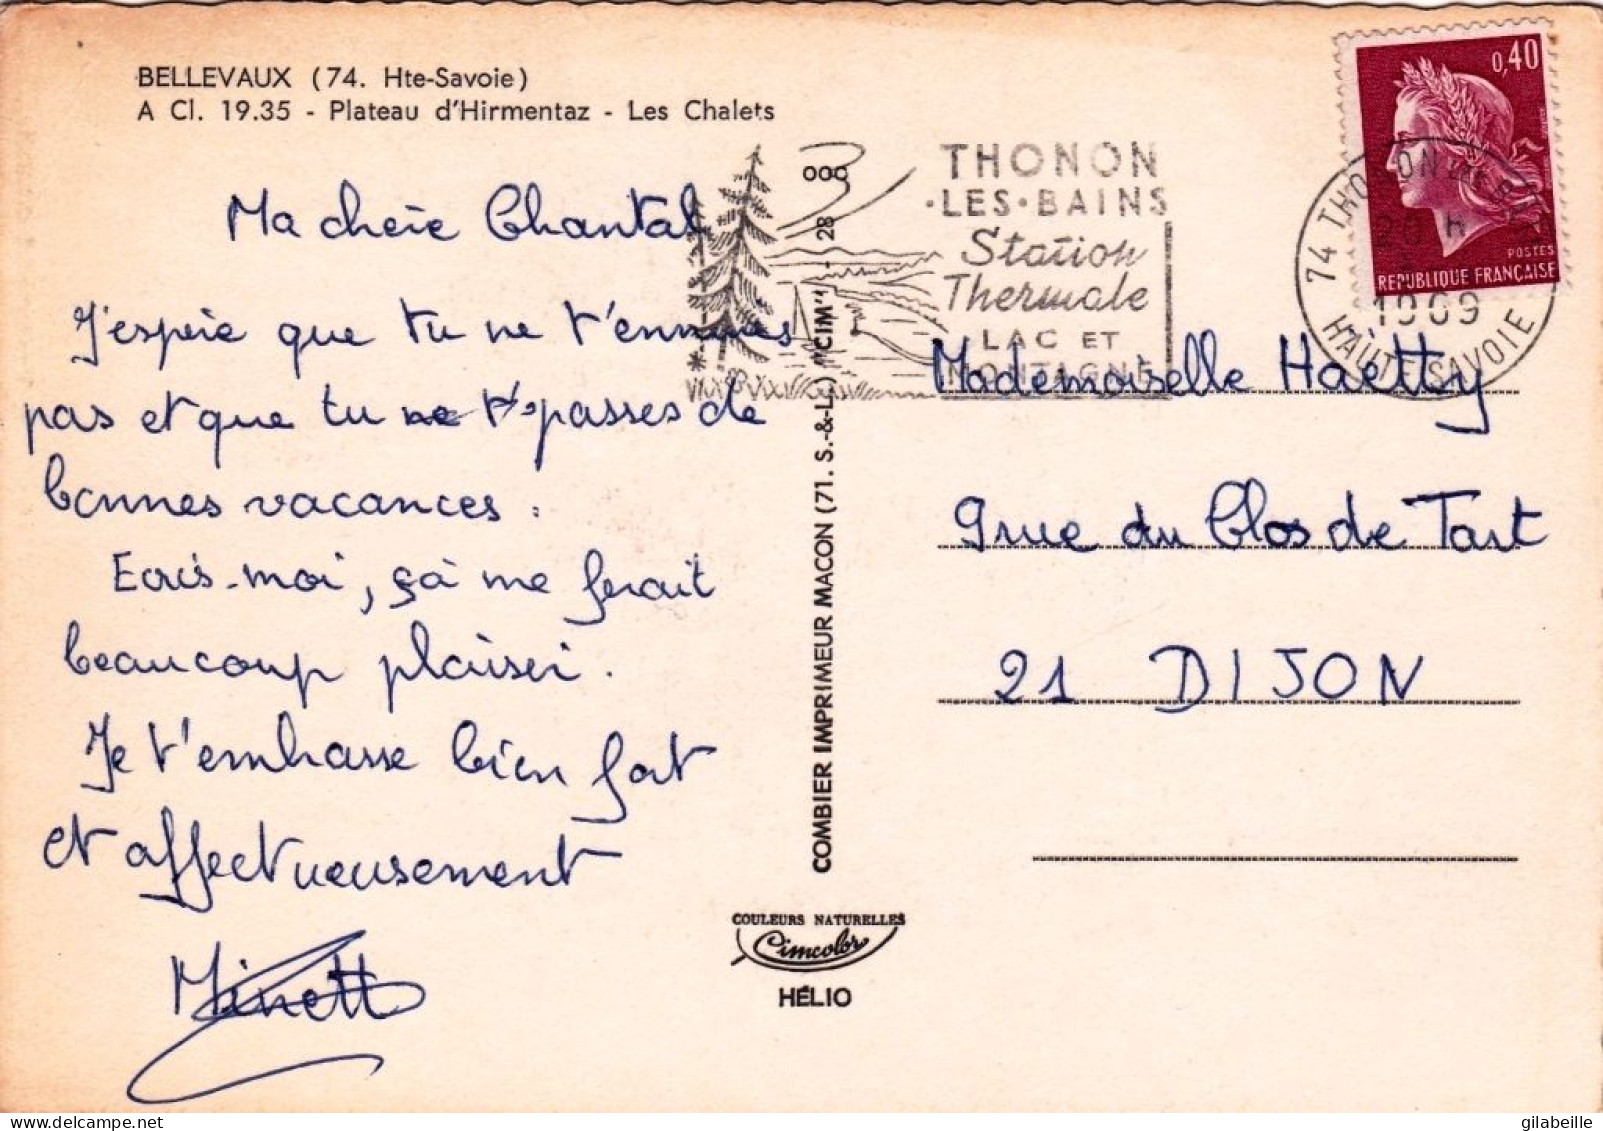 BELLEVAUX (74. Hte-Savoie)
A Cl. 19.35 - Plateau d'Hirmentaz - Les Chalets
Ma chère Chantal
J'espère que tu ne t'ennuies
pas et que tu ne t' passes de
bonnes vacances.
Ecris-moi, çà me ferait
beaucoup plaisir.
Je t'embrasse bien fort
et affectueusement
Minett
COMBIER IMPRIMEUR MACON (71. S.-&-L.) "CIM" - 28
COULEURS NATURELLES
Cimcolor
HÉLIO
THONON
·LES·BAINS
Station
Thermale
LAC ET
MONTAGNE
0,40
POSTES
REPUBLIQUE FRANÇAISE
74 THONON LES BAINS
20 H
1969
HAUTE SAVOIE
Mademoiselle Haetty
9 rue du Clos de Tart
21 DIJON
gilabeille